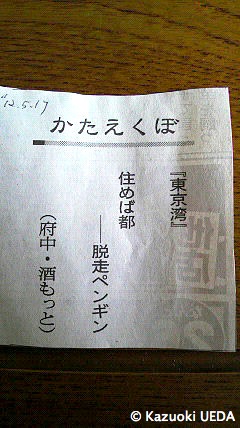 '12.5.17
かたえくぼ
『東京湾』
住めば都
――脱走ペンギン
（府中・酒もっと）
© Kazuoki UEDA